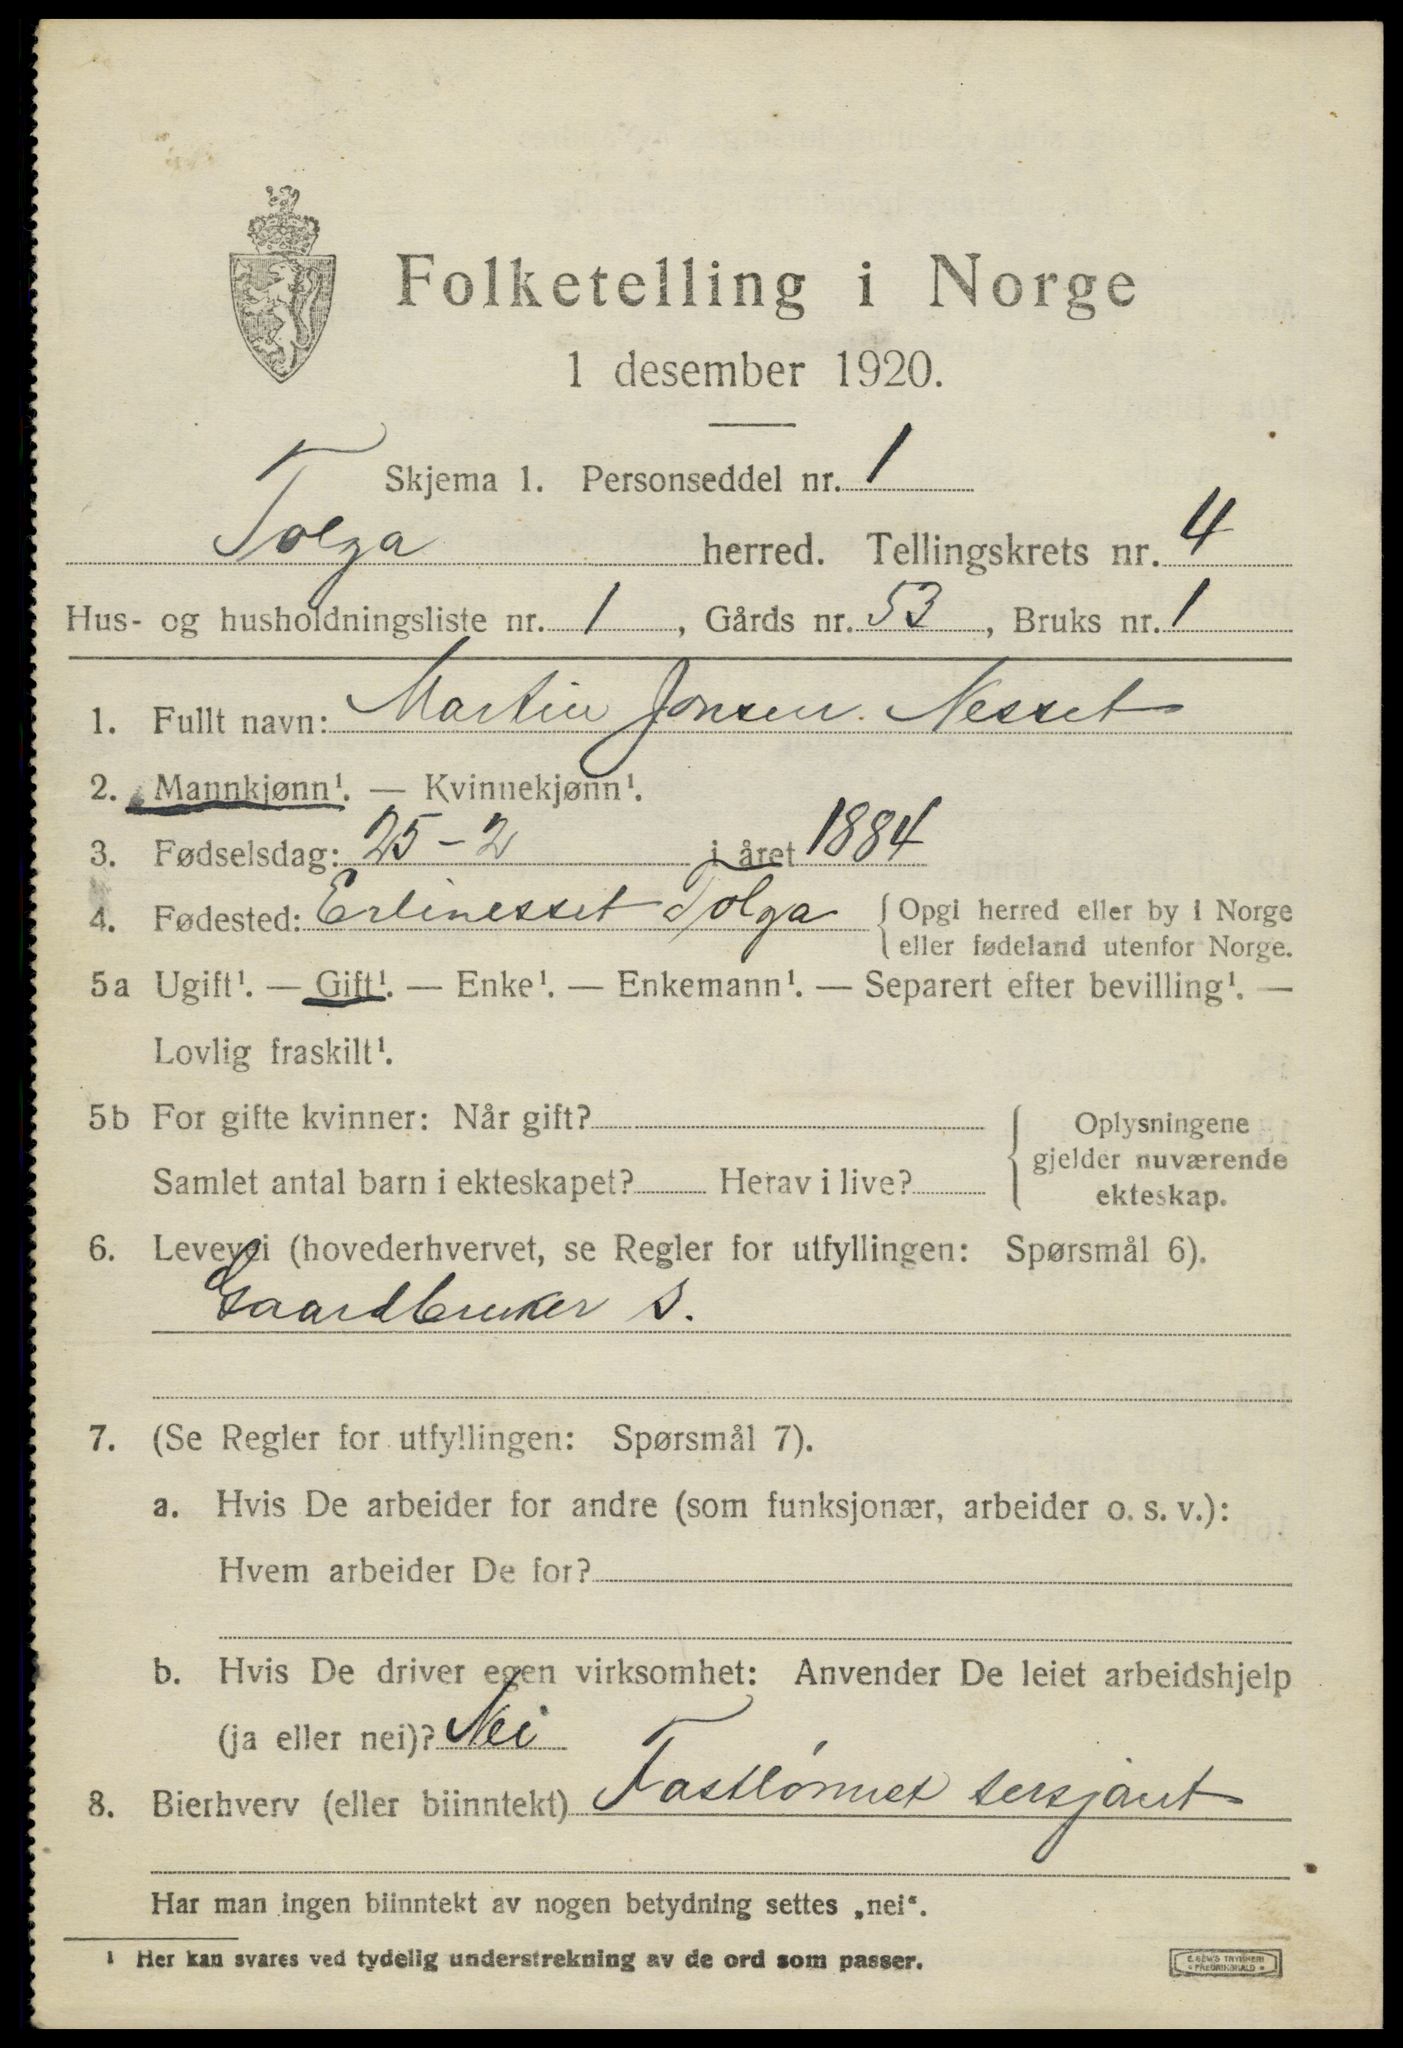 Folketelling i Norge
1 desember 1920.
Skjema 1. Personseddel nr. 1
Tolga herred. Tellingskrets nr. 4
Hus- og husholdningsliste nr. 1, Gårds nr. 53, Bruks nr. 1
1. Fullt navn: Martin Jonsen Nesset
2. Mannkjønn¹. — Kvinnekjønn¹.
3. Fødselsdag: 25-2 i året 1884
4. Fødested: Erlinesset Tolga { Opgi herred eller by i Norge
eller fødeland utenfor Norge.
5a Ugift¹. — Gift¹. — Enke¹. — Enkemann¹. — Separert efter bevilling¹. —
Lovlig fraskilt¹.
5b For gifte kvinner: Når gift?
Samlet antal barn i ekteskapet? Herav i live?
{ Oplysningene
gjelder nuværende
ekteskap.
6. Levevei (hovederhvervet, se Regler for utfyllingen: Spørsmål 6).
Gaardbruker S.
7. (Se Regler for utfyllingen: Spørsmål 7).
a. Hvis De arbeider for andre (som funksjonær, arbeider o. s. v.):
Hvem arbeider De for?
b. Hvis De driver egen virksomhet: Anvender De leiet arbeidshjelp
(ja eller nei)? Nei
8. Bierhverv (eller biinntekt) Fastlønnet sersjant
Har man ingen biinntekt av nogen betydning settes „nei“.
¹ Her kan svares ved tydelig understrekning av de ord som passer.
E. SEM'S TRYKKERI
FREDRIKSHALD